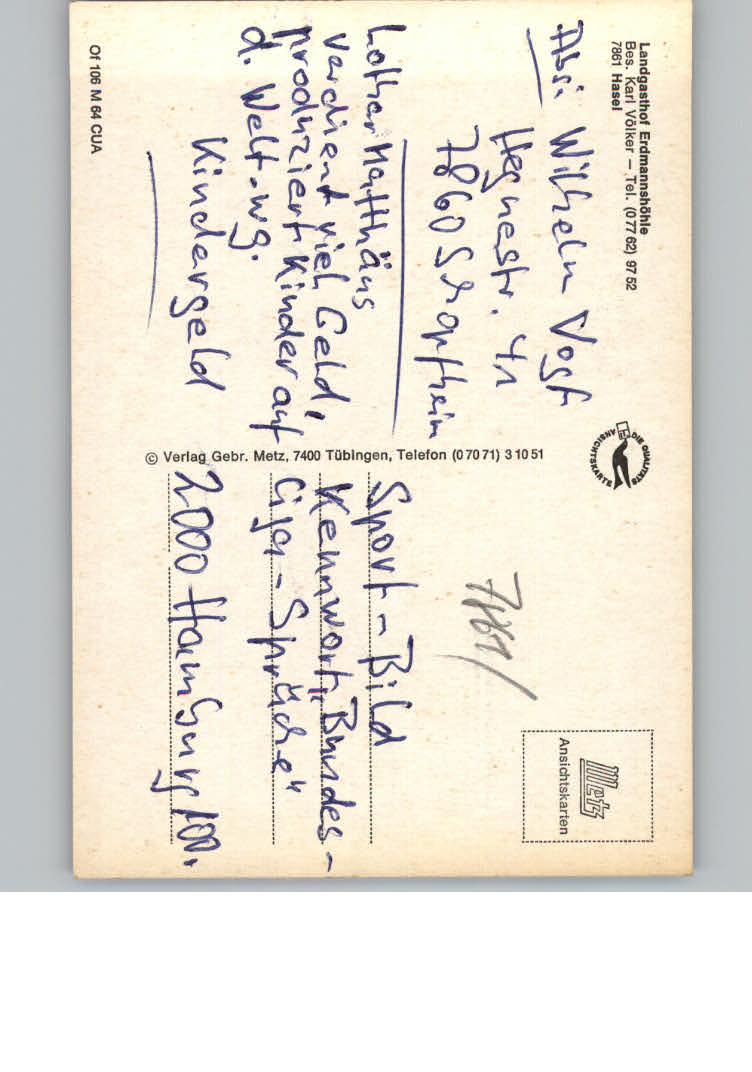 Landgasthof Erdmannshöhle
Bes. Karl Völker – Tel. (07762) 9752
7861 Hasel
Abs: Wilhelm Vogt
Hegnestr. 41
7860 Schopfheim
Lothar Matthäus
verdient viel Geld,
produziert Kinder auf
d. Welt. wg.
Kindergeld
Of 106 M 64 CUA
© Verlag Gebr. Metz, 7400 Tübingen, Telefon (07071) 31051
DIE QUALITÄTS
ANSICHTSKARTE
7861/
Metz
Ansichtskarten
Sport-Bild
Kennwort „Bundes-
liga-Sprüche"
2000 Hamburg 100.